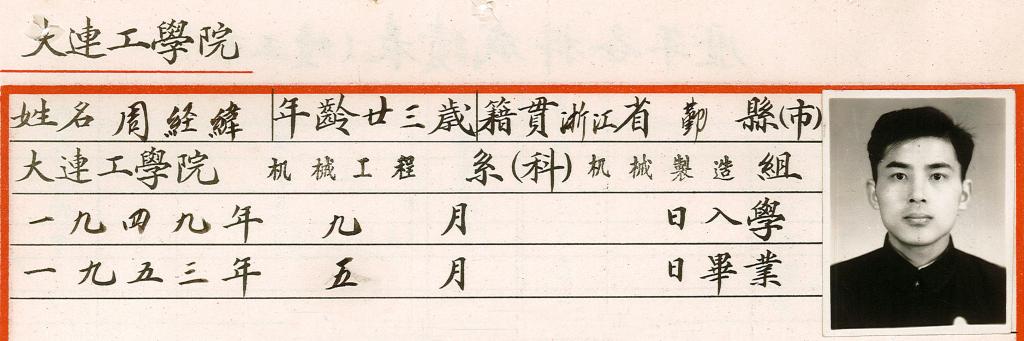 大連工學院
姓名 周経緯 年齡廿三歲 籍貫浙江省 勤 縣(市)
大連工學院 机械工程 系(科) 机械製造 組
一九四九年 九 月 日入學
一九五三年 五 月 日畢業